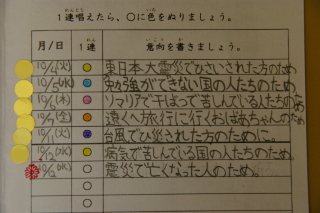 1連唱えたら、○に色をぬりましょう。
月/日 1連 意向を書きましょう。
10/4(火) 東日本大震災でひさいされた方のため
10/5(水) 勉強ができない国の人たちのため
10/6(木) ソマリアで干ばつで苦しんでいる人たちのため
10/7(金) 遠くへ旅行に行くおばあちゃんのため
10/11(火) 台風でひ災された方のために。
10/12(水) 病気で苦しんでいる国の人たちのため
震災で亡くなった人のため。